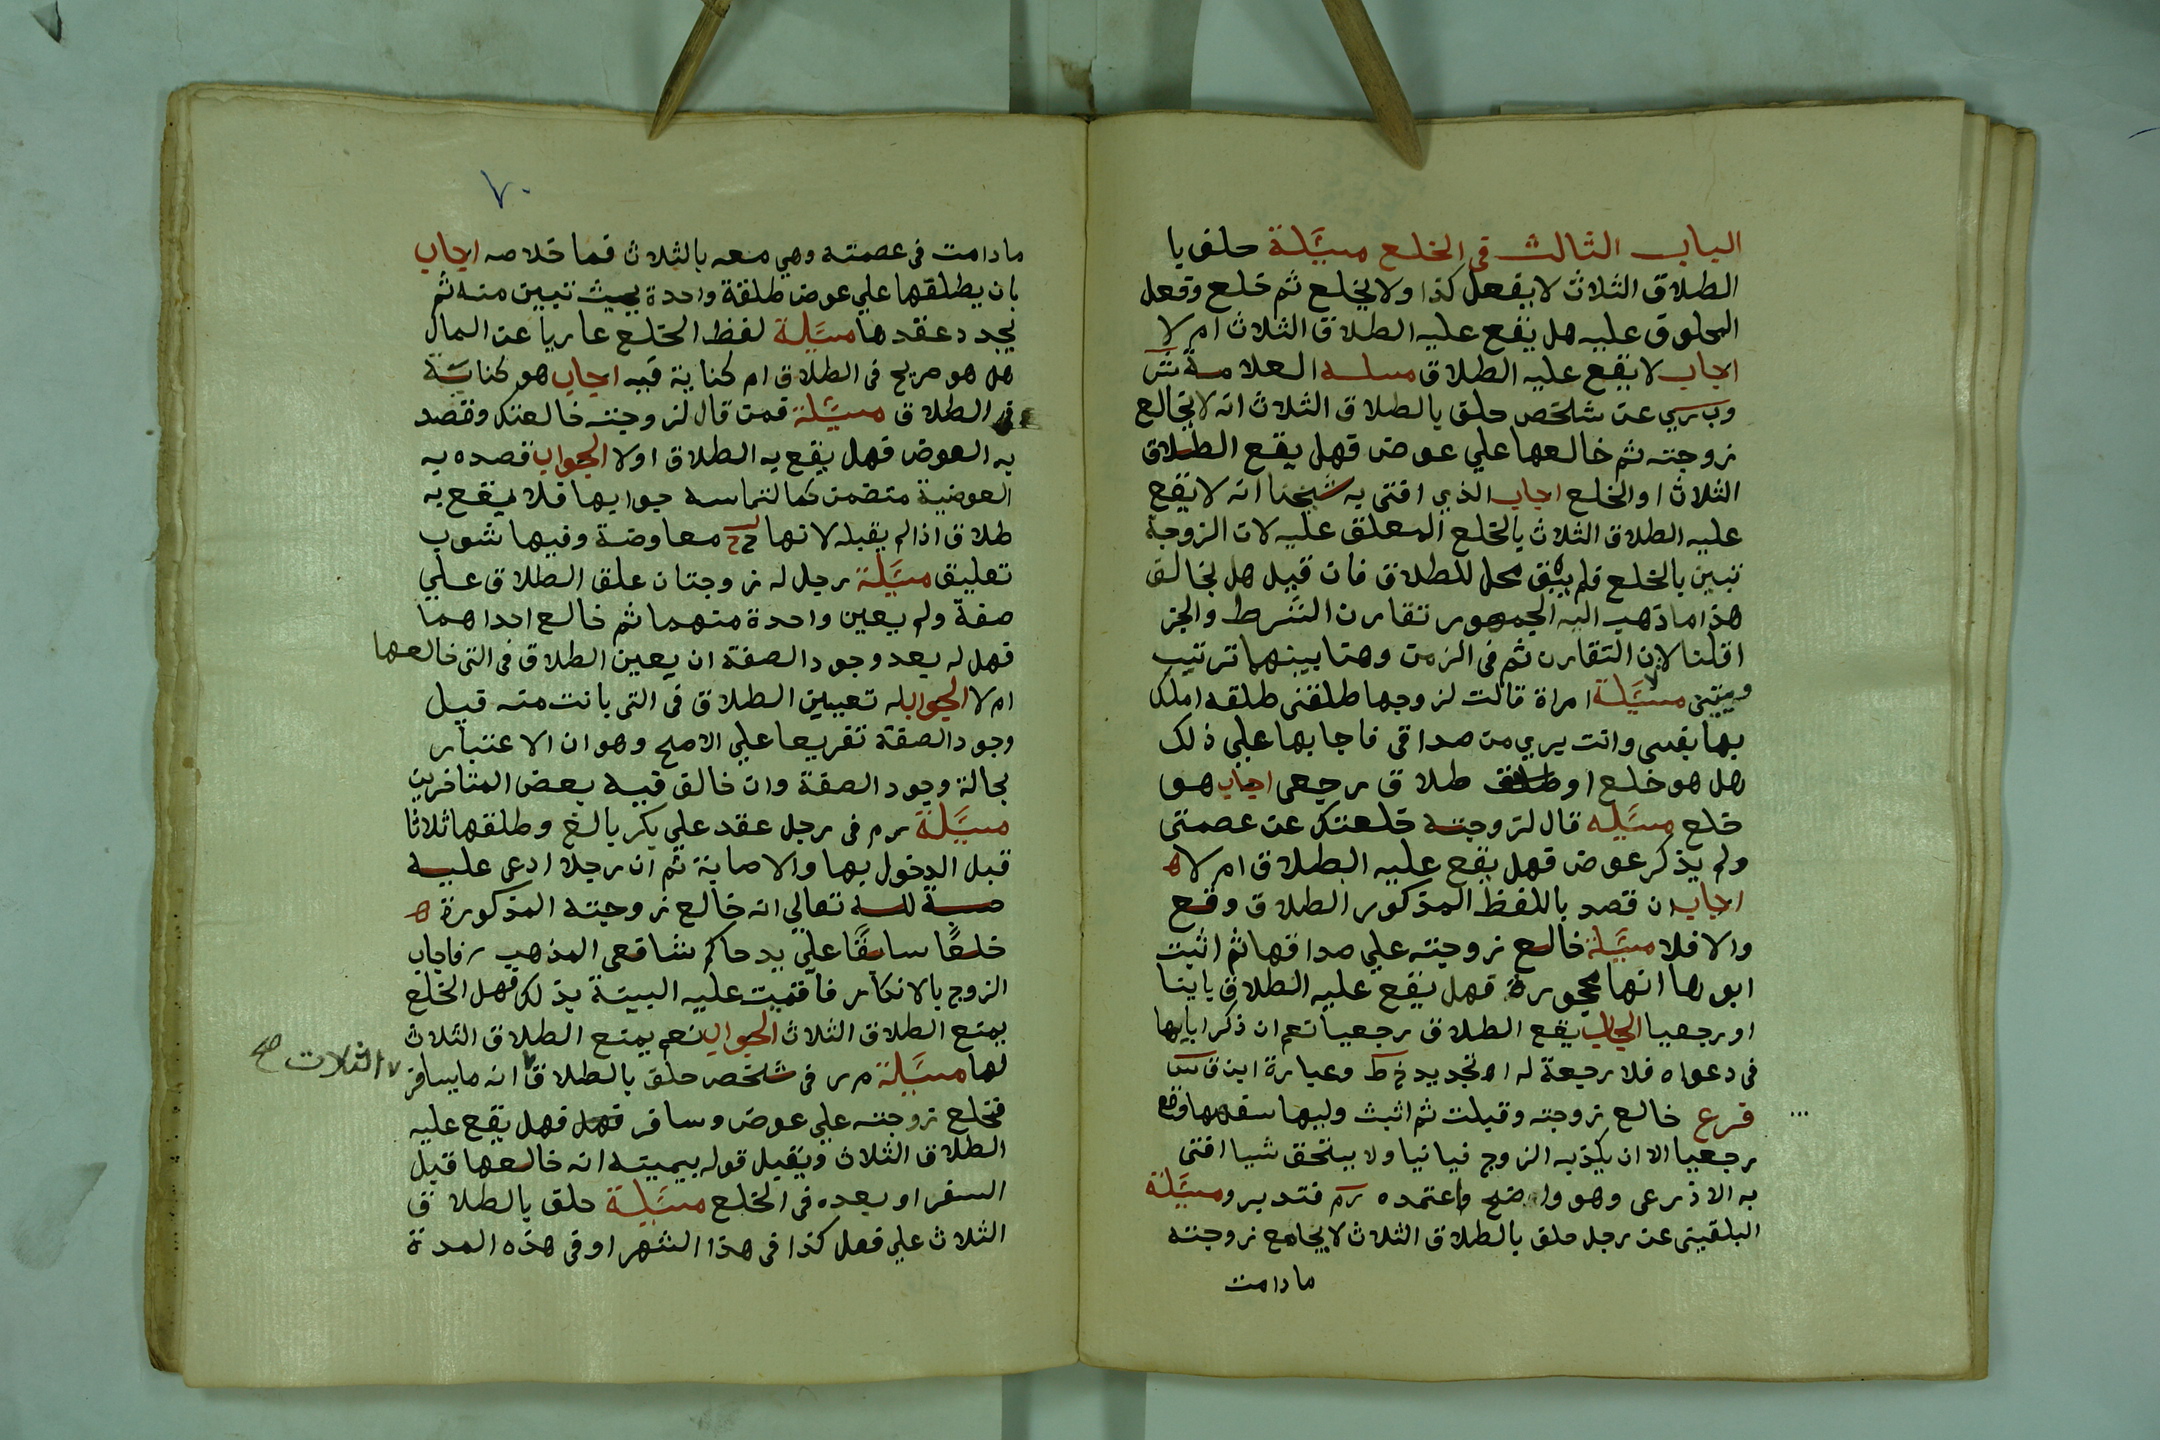 الباب الثالث في الخلع مسئلة حلف با
الطلاق الثلاث لا يفعل كذا ولا يخلع ثم خلع وفعل
المحلوف عليه هل يقع عليه الطلاق الثلاث ام لا
اجاب لا يقع عليه الطلاق مسله العلامة
عن شخص حلف بالطلاق الثلاث انه لا يخالع
زوجته ثم خالعها علي عوض فهل يقع الطلاق
الثلاث او الخلع اجاب الذي افتى به شيخنا انه لا يقع
عليه الطلاق الثلاث بالخلع المعلق عليه لان الزوجة
تبين بالخلع فلم يبق محل للطلاق فان قيل هل يخالف
هذا ما ذهب اليه الجمهور تقارن الشرط والجز
اقلنا لان التقارن ثم في الزمن وهنا بينهما ترتيب
مسئلة امراة قالت لزوجها طلقني طلقه املك
بها نفسي وانت بري من صداقي فاجابها علي ذلك
هل هو خلع او طلاق رجعي اجاب هو
خلع مسئله قال لزوجته خلعتك عن عصمتي
ولم يذكر عوض فهل يقع عليه الطلاق ام لا ه
اجاب ان قصد باللفظ المذكور الطلاق وقع
والا فلا مسئلة خالع زوجته علي صداقها ثم اثبت
ابوها انها محجورة فهل يقع عليه الطلاق باينا
او رجعيا الجاب يقع الطلاق رجعيا نعم ان ذكر ابابها
في دعواه فلا رجعة له الا تجديد خ ط وعبارة ابن قاس
فرع خالع زوجته وقبلت ثم اثبت وليها سفهها وقع
رجعيا الا ان يكذبه الزوج فبانيا ولا يستحق شيا افتى
به الاذرعي وهو واضح واعتمده رم فتدبر ومسئلة
البلقيني عن رجل حلف بالطلاق الثلاث لا يجامع زوجته
ما دامت
٧٠
ما دامت في عصمته وهي معه بالثلاث فما خلاصه اجاب
بان يطلقها علي عوض طلقة واحدة بحيث تبين منه ثم
يجدد عقدها مسئلة لفظ الخلع عاريا عن المال
هل هو صريح في الطلاق ام كناية فيه اجاب هو كناية
في الطلاق مسئلة فمن قال لزوجته خالعتك وقصد
به العوض فهل يقع به الطلاق اولا الجواب قصده به
العوضية متضمن لالتماسه جوابها فلا يقع به
طلاق اذا لم يقبله لانها ح معاوضة وفيها شوب
تعليق مسئلة رجل له زوجتان علق الطلاق علي
صفة ولم يعين واحدة منهما ثم خالع احداهما
فهل له بعد وجود الصفة ان يعين الطلاق في التي خالعها
ام لا الجواب له تعيين الطلاق في التي بانت منه قبل
وجود الصفة تفريعا علي الاصح وهو ان الاعتبار
بحالة وجود الصفة وان خالف فيه بعض المتاخرين
مسئلة رم في رجل عقد علي بكر بالغ وطلقها ثلاثا
قبل الدخول بها والاصابة ثم ان رجلا ادعى عليه
حسبة لله تعالي انه خالع زوجته المذكورة ه
خلعًا سابقًا علي يد حاكم شافعي المذهب فاجاب
الزوج بالانكار فاقيمت عليه البينة بذلك فهل الخلع
يمنع الطلاق الثلاث الجواب نعم يمنع الطلاق الثلاث
لها مسئلة م ر في شخص حلف بالطلاق انه ما يسافر
الثلاث صح
فخلع زوجته علي عوض وسافر فهل فهل يقع عليه
الطلاق الثلاث ويقبل قوله بيمينه انه خالعها قبل
السفر او بعده في الخلع مسئلة حلف بالطلاق
الثلاث علي فعل كذا في هذا الشهر او في هذه المدة